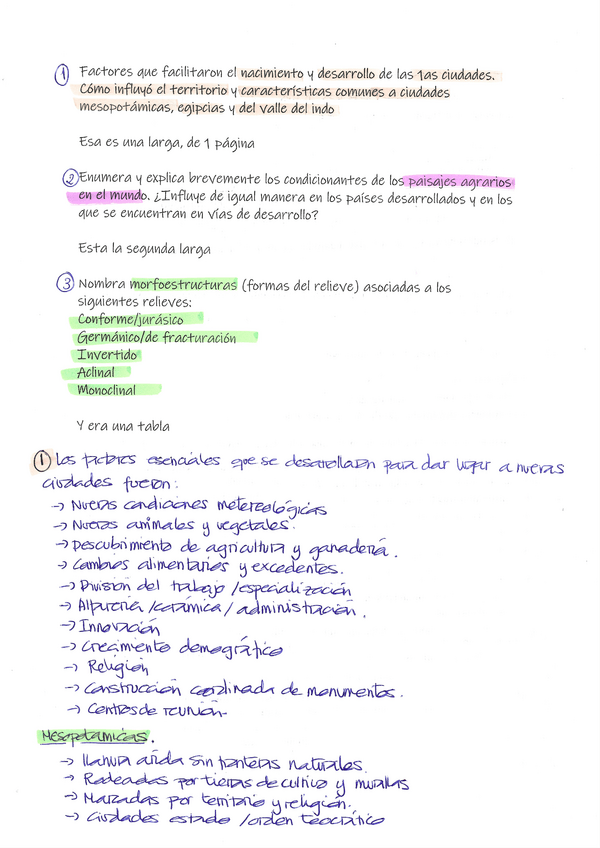 1 Factores que facilitaron el nacimiento y desarrollo de las 1as ciudades.
Cómo influyó el territorio y características comunes a ciudades
mesopotámicas, egipcias y del valle del indo
Esa es una larga, de 1 página
2 Enumera y explica brevemente los condicionantes de los paisajes agrarios
en el mundo. ¿Influye de igual manera en los países desarrollados y en los
que se encuentran en vías de desarrollo?
Esta la segunda larga
3 Nombra morfoestructuras (formas del relieve) asociadas a los
siguientes relieves:
Conforme/jurásico
Germánico/de fracturación
Invertido
Aclinal
Monoclinal
Y era una tabla
1 Los factores esenciales que se desarrollaron para dar lugar a nuevas
ciudades fueron:
→ Nuevas condiciones metereológicas
→ Nuevos animales y vegetales.
→ Descubrimiento de agricultura y ganadería.
→ Cambios alimentarios y excedentes.
→ División del trabajo /especialización
→ Alfarería /cerámica / administración.
→ Innovación
→ Crecimiento demográfico
→ Religión
→ Construcción coordinada de monumentos.
→ Centros de reunión.
Mesopotámicas.
→ llanura árida sin fronteras naturales.
→ Rodeadas por tierras de cultivo y murallas
→ Marcadas por territorio y religión.
→ Ciudades estado /orden teocrático